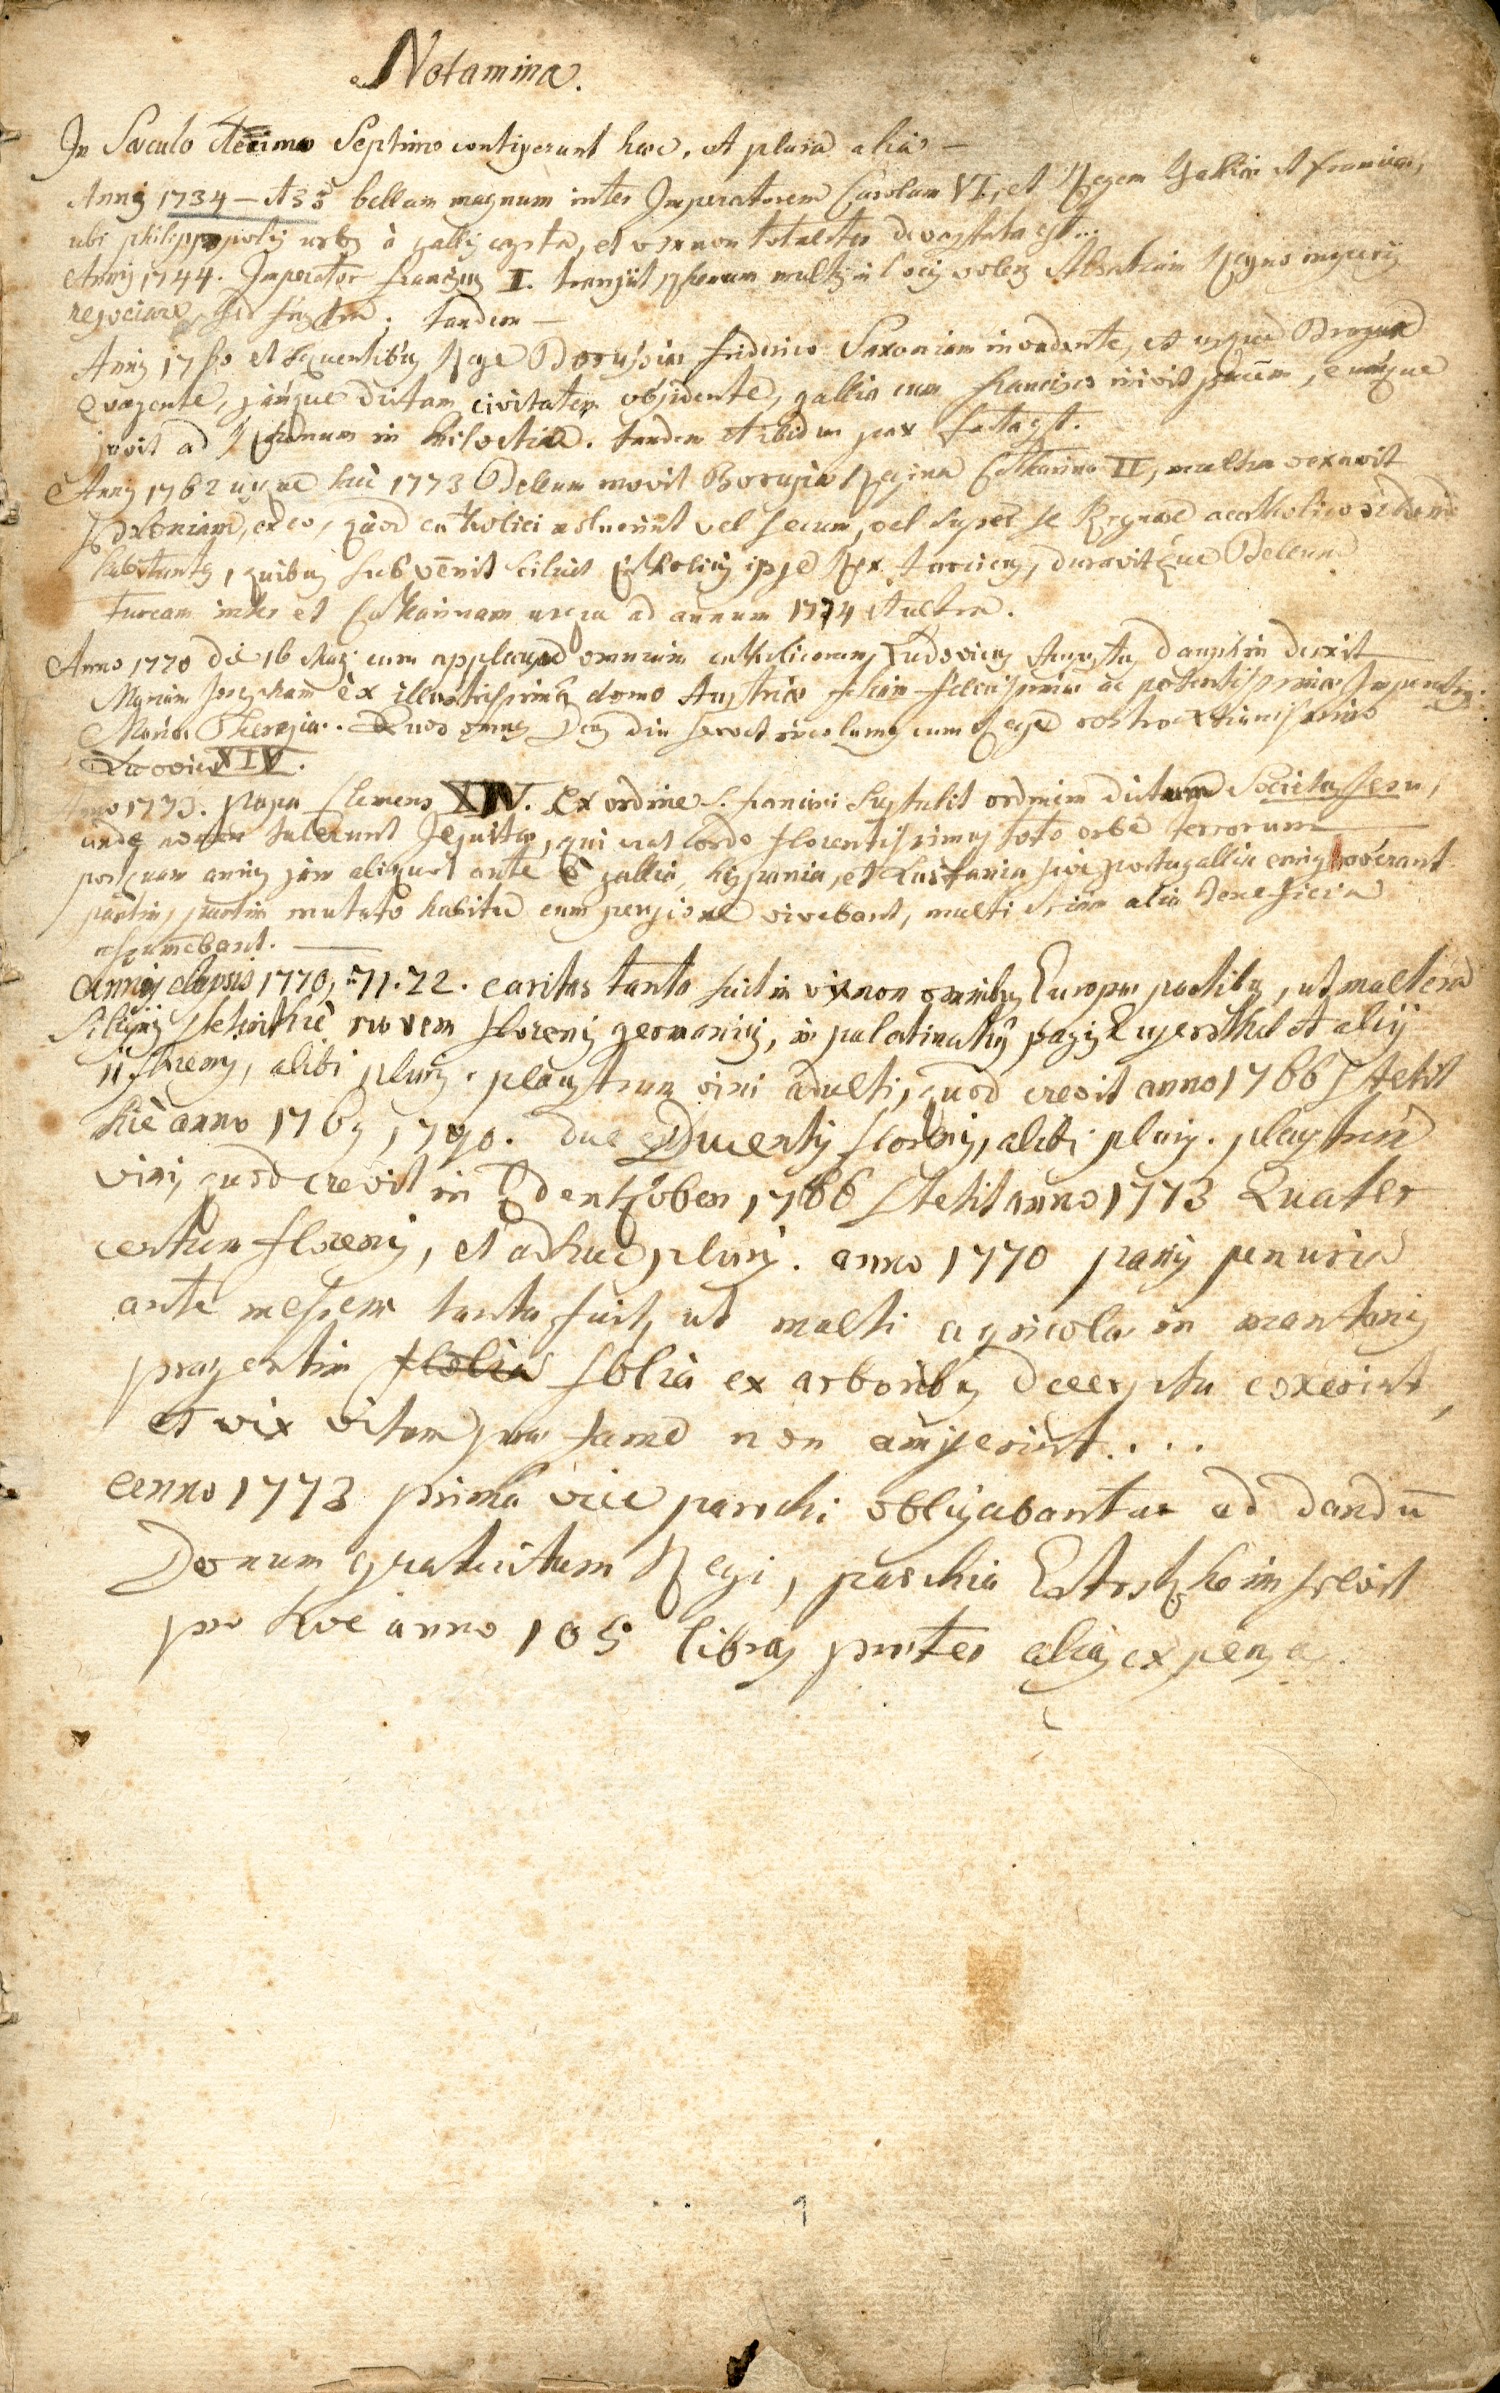 Notamina.
In Saeculo decimo Septimo contigerunt haec, et plura alia —
Annis 1734 — et 35 bellum magnum inter Imperatorem Carolum VI, et Regem Galliae et franciae,
ubi philippopolis urbs à gallis capta, et vix non totaliter devastata est...
Annis 1744. Imperator franciscus I. transiit Rhenum multis in locis volens Alsatiam Regno
negociare, sed frustra; tandem —
Annis 17 et sequentibus Rege Borussiae friderico Saxoniam invadente, et usque Pragam
evagente, jamque dictam civitatem obsidente, gallia cum francisco inivit pacem, eumque
juvit ad Rhenum in . tandem et ibidem pax facta est.
Annis 1762 usque huc 1773 Bellum movit Borussia Regina Catharina II, multum vexavit
Poloniam, ex eo, quod catholici noluerint vel secum, vel super se Regnare acatholicos ibidem
habitantes, quibus subvenit scilicet Catholicis ipse Rex Turcicus, duravitque Bellum
Turcam inter et Catharinam usque ad annum 1774 et ultra.
Anno 1770 die 16 Maij cum applausu omnium catholicorum Ludovicus Augustus dauphin duxit
Mariam Josepham ex illustrissima domo Austriae filiam felicissimae ac potentissimae Imperatricis
Mariae Theresiae. Quos omnes Deus diu servet incolumes cum Rege nostro Xtianissimo
Ludovico XIV.
Anno 1773. Papa Clemens XIV. Ex ordine S. francisci Sustulit ordinem dictum Societatis Jesu,
unde nomen tulerunt Jesuitae, qui erat ordo florentissimus toto orbe terrarum
postquam annis jam aliquot ante è gallia, hispania, et Lusitania sive portugallia emigraverant
partim, partim mutato habitu cum pensione vivebant, multi etiam alia Beneficia
assumebant.
Annis elapsis 1770, =71.72. caritas tanta fuit in vixnon omnibus Europae partibus, ut maltera
siliginis steterit hic novem florenis germanicis, in palatinatus pagis et alijs
11 florenis, alibi pluris. plaustrum vini adulti, quod crevit anno 1766 stetit
hic anno 1769, 1770. ducentis florenis, alibi pluris. plaustrum
vini, quod crevit in Edentzoben 1766 stetit anno 1773 Quater
centum florenis, et adhuc pluris. anno 1770 panis penuria
ante messem tanta fuit, ut multi agricolae in montanis
praesertim folia ex arboribus decerpta coxerint,
et vix vitam prae fame non amiserint....
Anno 1773 prima vice parochi obligabantur ad dandū
Donum gratuitum Regi, parochia solvit
pro hoc anno 105 libras praeter alias expensas.
1